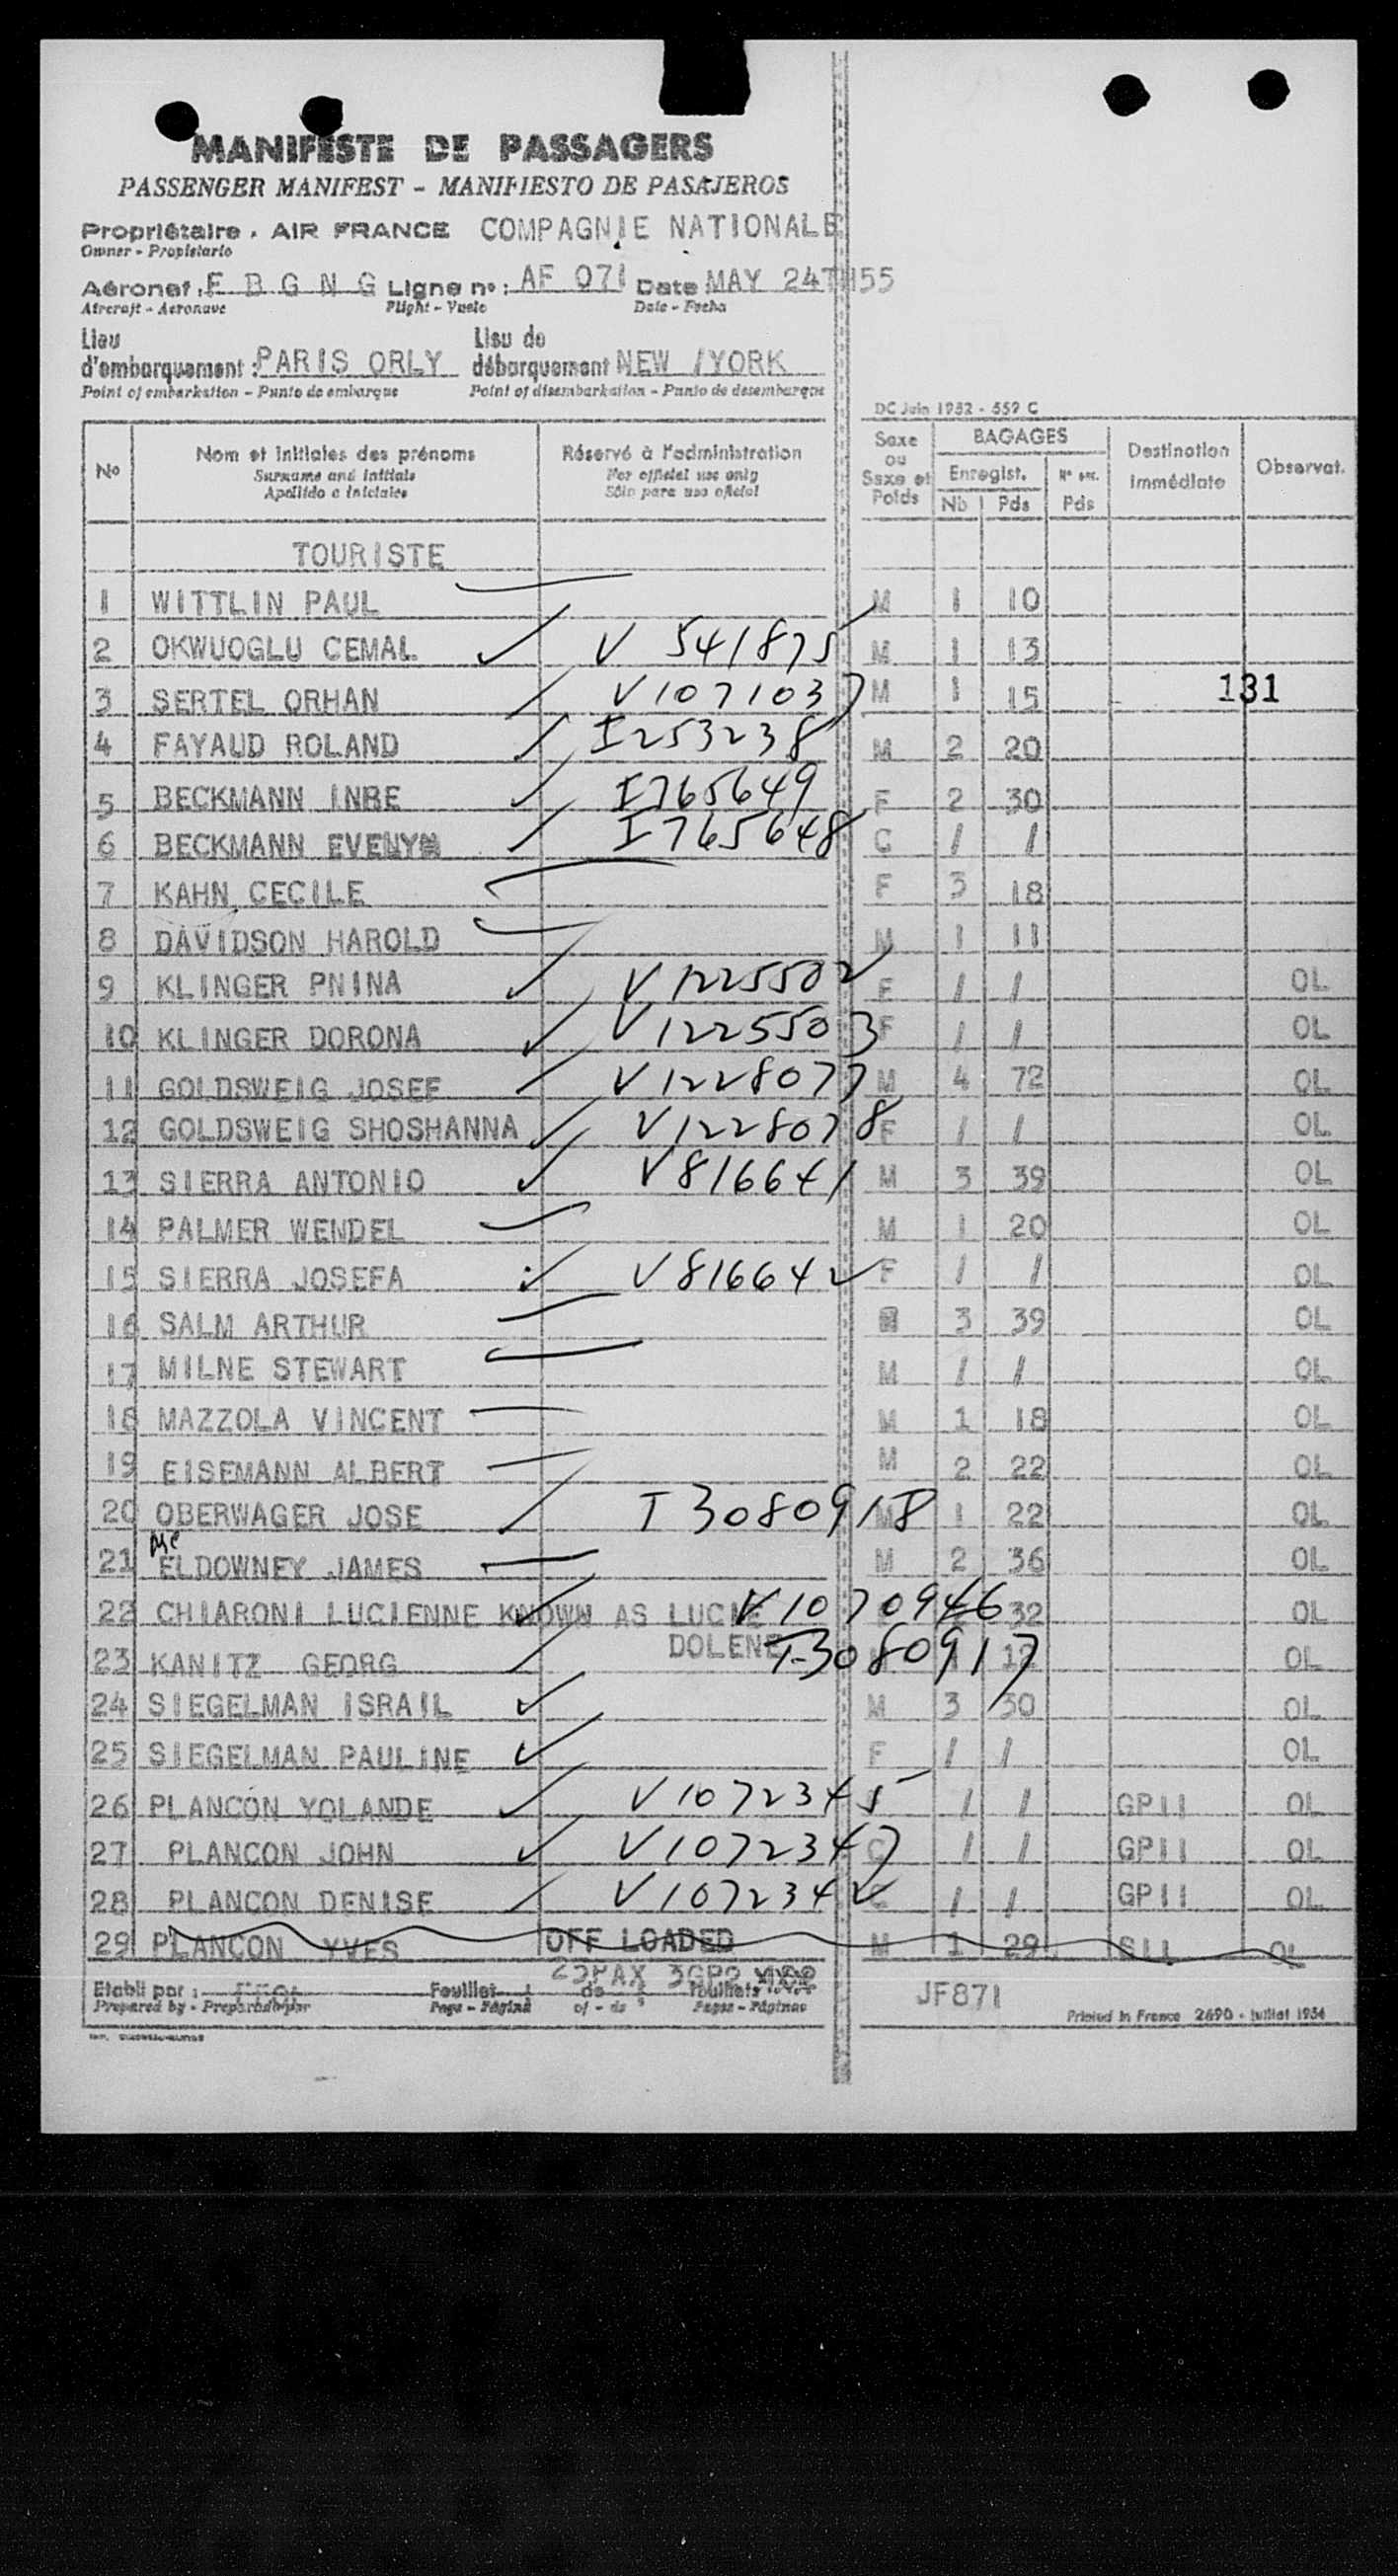 MANIFESTE DE PASSAGERS
PASSENGER MANIFEST - MANIFIESTO DE PASAJEROS
Propriétaire . AIR FRANCE COMPAGNIE NATIONALE
Owner - Propietario
Aéronef : F B G N G Ligne nº : AF 071 Date MAY 24TH55
Aircraft - Aeronave Flight - Vuelo Date - Fecha
Lieu Lieu de
d'embarquement : PARIS ORLY débarquement NEW /YORK
Point of embarkation - Punto de embarque Point of disembarkation - Punto de desembarque
DC Juin 1952 - 559 C
No Nom et initiales des prénoms Réservé à l'administration Sexe ou Sexe et Poids BAGAGES Destination immédiate Observat.
Surname and initials For official use only Enregist. Nº enr.
Apellido e iniciales Sólo para uso oficial Nb Pds Pds
TOURISTE
1 WITTLIN PAUL M 1 10
2 OKWUOGLU CEMAL V 541875 M 1 13
3 SERTEL ORHAN V1071037 M 1 15 131
4 FAYAUD ROLAND I253238 M 2 20
5 BECKMANN INBE I765649 F 2 30
6 BECKMANN EVENYN I765648 C / /
7 KAHN CECILE F 3 18
8 DAVIDSON HAROLD M 1 11
9 KLINGER PNINA V1225502 F / / OL
10 KLINGER DORONA V1225503 F / / OL
11 GOLDSWEIG JOSEF V1228077 M 4 72 OL
12 GOLDSWEIG SHOSHANNA V1228078 F / / OL
13 SIERRA ANTONIO V816641 M 3 39 OL
14 PALMER WENDEL M 1 20 OL
15 SIERRA JOSEFA V816642 F / / OL
16 SALM ARTHUR 3 39 OL
17 MILNE STEWART M / / OL
18 MAZZOLA VINCENT M 1 18 OL
19 EISEMANN ALBERT M 2 22 OL
20 OBERWAGER JOSE T 3080918 M 1 22 OL
21 Mc ELDOWNEY JAMES M 2 36 OL
22 CHIARONI LUCIENNE KNOWN AS LUCIE V1070946 32 OL
DOLENE
23 KANITZ GEORG T-3080917 1 12 OL
24 SIEGELMAN ISRAIL M 3 30 OL
25 SIEGELMAN PAULINE F / / OL
26 PLANCON YOLANDE V1072345 / / GP11 OL
27 PLANCON JOHN V1072347 C / / GP11 OL
28 PLANCON DENISE V1072342 C / / GP11 OL
29 PLANCON YVES OFF LOADED M 1 29 OL
Etabli par : Feuillet 1 de Feuillets JF871
Prepared by - Preparado por Page - Página of - de Pages - Páginas Printed in France 2690 - juillet 1954